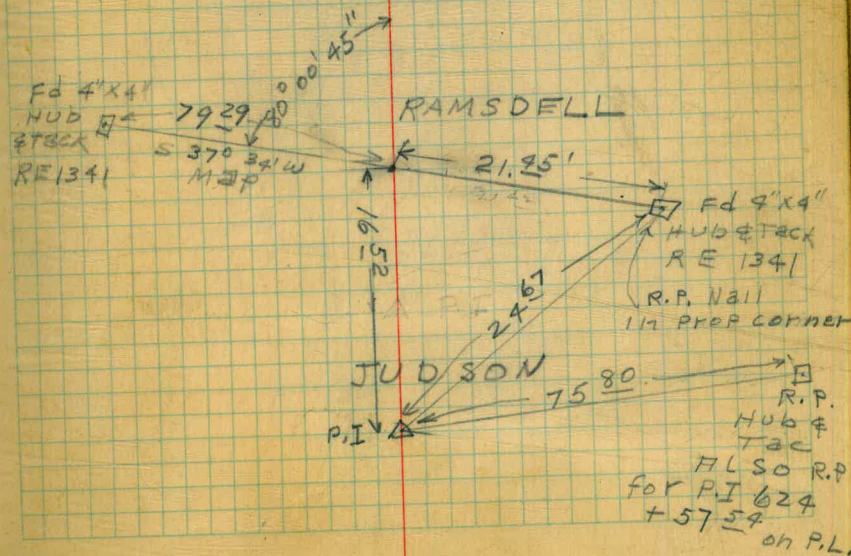 80° 00' 45"
Fd 4"x4"
Hub
& Tack
RE 1341
79 29
S 37° 34' W
Map
RAMSDELL
21.45'
16 52
Fd 4"x4"
Hub & Tack
RE 1341
R.P. Nail
in prop corner
24 67
JUDSON
75 80
P.I
R.P.
Hub &
Tac
ALSO R.P
for P.I 624
+ 57 54
on P.L.